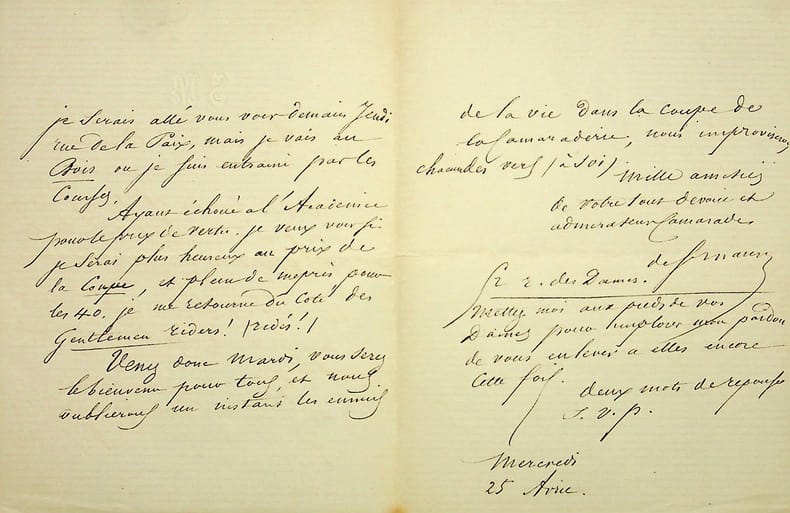 je serais allé vous voir demain Jeudi
rue de la Paix, mais je vais au
Bois ou je suis entrainé par les
Courses.
Ayant échoué a l'Academie
pour le prix de vertu. je veux voir si
je serai plus heureux au prix de
la Coupe, et plein de mepris pour
les 40. je me retourne du Coté des
Gentlemen riders! (ridés!)
Venez donc Mardi, vous serez
le bienvenu pour tous, et nous
oublierons un instant les ennuis
de la vie dans la coupe de
la Camaraderie, nous improviserons
chacun des vers (à soi) Mille amitiés
de votre tout devoué et
admirateur Camarade
de
r. des Dames.
Mettez moi aux pieds de vos
Dames pour implorer mon pardon
de vous enlever a elles encore
cette fois.
deux mots de reponse
S. V. P.
Mercredi
25 Avril.